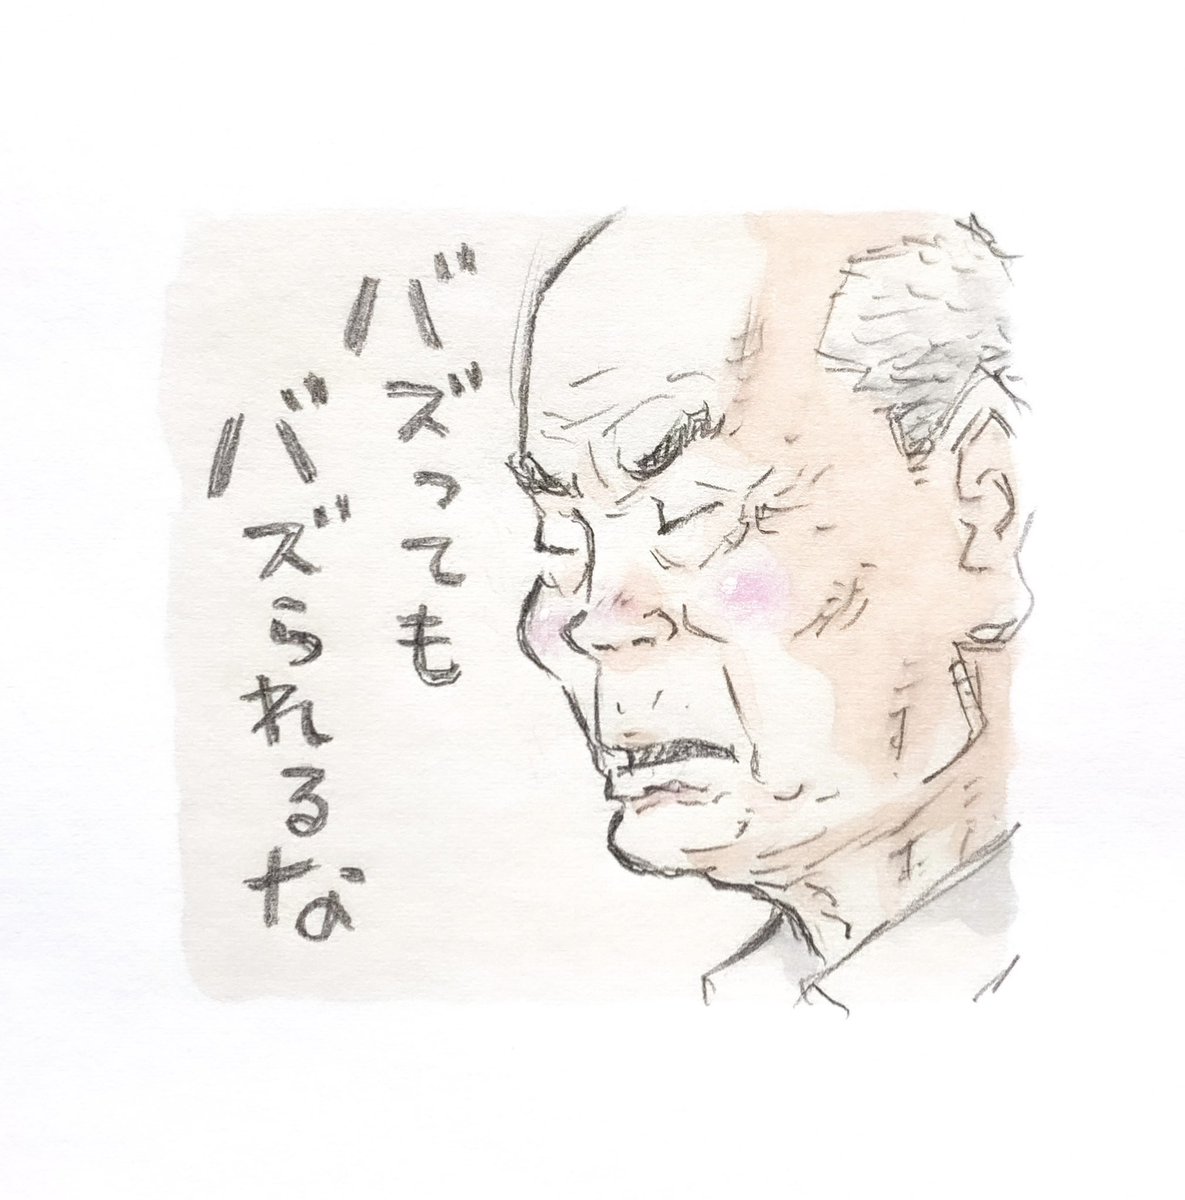 バズっても
バズられるな